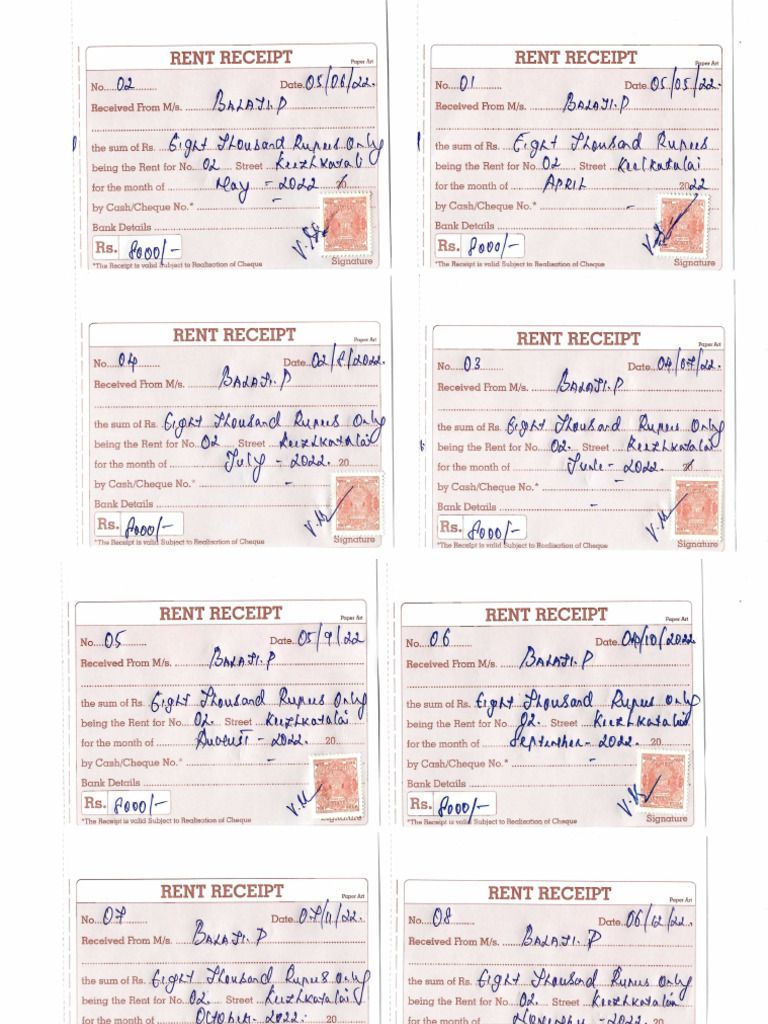 RENT RECEIPT
Paper Art
No....02.......... Date..05/06/22.
Received From M/s. ....BALAJI.P
the sum of Rs. ..Eight Thousand Rupees Only
being the Rent for No..02.... Street ..Keezhkatalai
for the month of .......May - 2022 20
by Cash/Cheque No.* .......-
Bank Details ........-
Rs. 8000/-
*The Receipt is valid Subject to Realisation of Cheque
Signature
RENT RECEIPT
Paper Art
No....01.......... Date..05/05/22.
Received From M/s. ....BALAJI.P
the sum of Rs. ... Eight Thousand Rupees
being the Rent for No..02.... Street ..Keelkatalai
for the month of .......APRIL 2022
by Cash/Cheque No.* .......-
Bank Details ........-
Rs. 8000/-
*The Receipt is valid Subject to Realisation of Cheque
Signature
RENT RECEIPT
Paper Art
No....04.......... Date..02/8/2022.
Received From M/s. ....BALAJI.P
the sum of Rs. Eight Thousand Rupees Only
being the Rent for No..02.... Street ..Keezhkatalai
for the month of .......July - 2022. 20
by Cash/Cheque No.* .......-
Bank Details ........-
Rs. 8000/-
*The Receipt is valid Subject to Realisation of Cheque
Signature
RENT RECEIPT
Paper Art
No....03.......... Date..04/07/22.
Received From M/s. ....BALAJI.P
the sum of Rs. Eight Thousand Rupees Only
being the Rent for No..02.... Street ..Keezhkatalai
for the month of .......June - 2022. 20
by Cash/Cheque No.* .......-
Bank Details ........-
Rs. 8000/-
*The Receipt is valid Subject to Realisation of Cheque
Signature
RENT RECEIPT
Paper Art
No....05.......... Date..05/9/22
Received From M/s. ....BALAJI.P
the sum of Rs. Eight Thousand Rupees Only
being the Rent for No...02.. Street ..Keezhkatalai
for the month of .......AUGUST - 2022. 20
by Cash/Cheque No.* .......-
Bank Details ........
Rs. 8000/-
*The Receipt is valid Subject to Realisation of Cheque
Signature
RENT RECEIPT
Paper Art
No....06.......... Date..04/10/2022
Received From M/s. ....BALAJI.P
the sum of Rs. Eight Thousand Rupees Only
being the Rent for No...02. Street ..Keezhkatalai
for the month of .......September - 2022. 20
by Cash/Cheque No.* .......-
Bank Details ........
Rs. 8000/-
*The Receipt is valid Subject to Realisation of Cheque
Signature
RENT RECEIPT
Paper Art
No....07.......... Date..07/11/22.
Received From M/s. ....BALAJI.P
the sum of Rs. Eight Thousand Rupees Only
being the Rent for No...02.. Street ..Keezhkatalai
for the month of .......OCTOBER - 2022. 20
RENT RECEIPT
Paper Art
No....08.......... Date..06/12/22.
Received From M/s. ....BALAJI.P
the sum of Rs. Eight Thousand Rupees Only
being the Rent for No...02. Street ..Keezhkatalai
for the month of .......November - 2022. 20